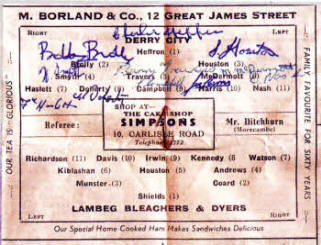 M. BORLAND & CO., 12 GREAT JAMES STREET
RIGHT DERRY CITY LEFT
Heffron (1)
Brolly (2) Houston (3)
Smyth (4) Travers (5) McDermott (6)
Haslett (7) Doherty (8) Campbell (9) Harris (10) Nash (11)
SHOP AT—
THE CAKE SHOP
Referee: SIMPSONS Mr. Hitchburn
10, CARLISLE ROAD (Morecambe)
Telephone
Richardson (11) Davis (10) Irwin (9) Kennedy (8) Watson (7)
Kiblashan (6) Houston (5) Andrews (4)
Munster (3) Coard (2)
Shields (1)
LEFT LAMBEG BLEACHERS & DYERS RIGHT
Our Special Home Cooked Ham Makes Sandwiches Delicious
OUR TEA IS "GLORIOUS"
FAMILY FAVOURITE FOR SIXTY YEARS